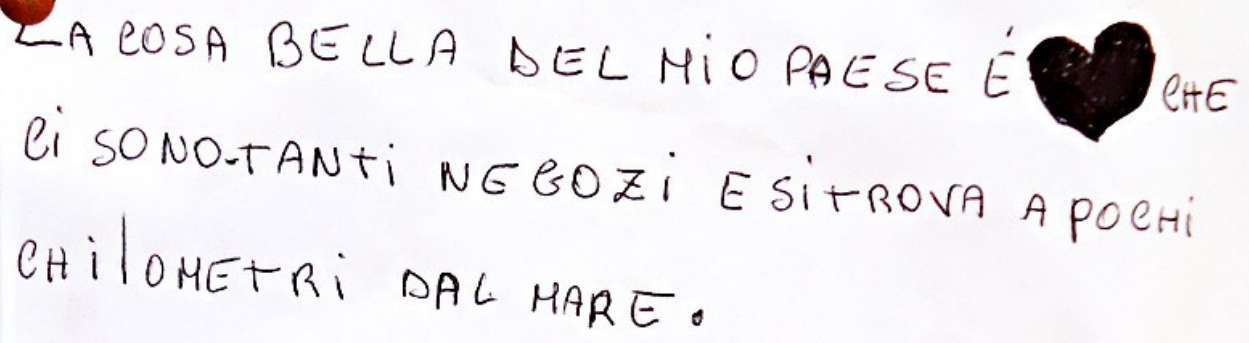 LA COSA BELLA DEL MIO PAESE É CHE
CI SONO TANTI NEGOZI E SI TROVA A POCHI
CHILOMETRI DAL MARE.